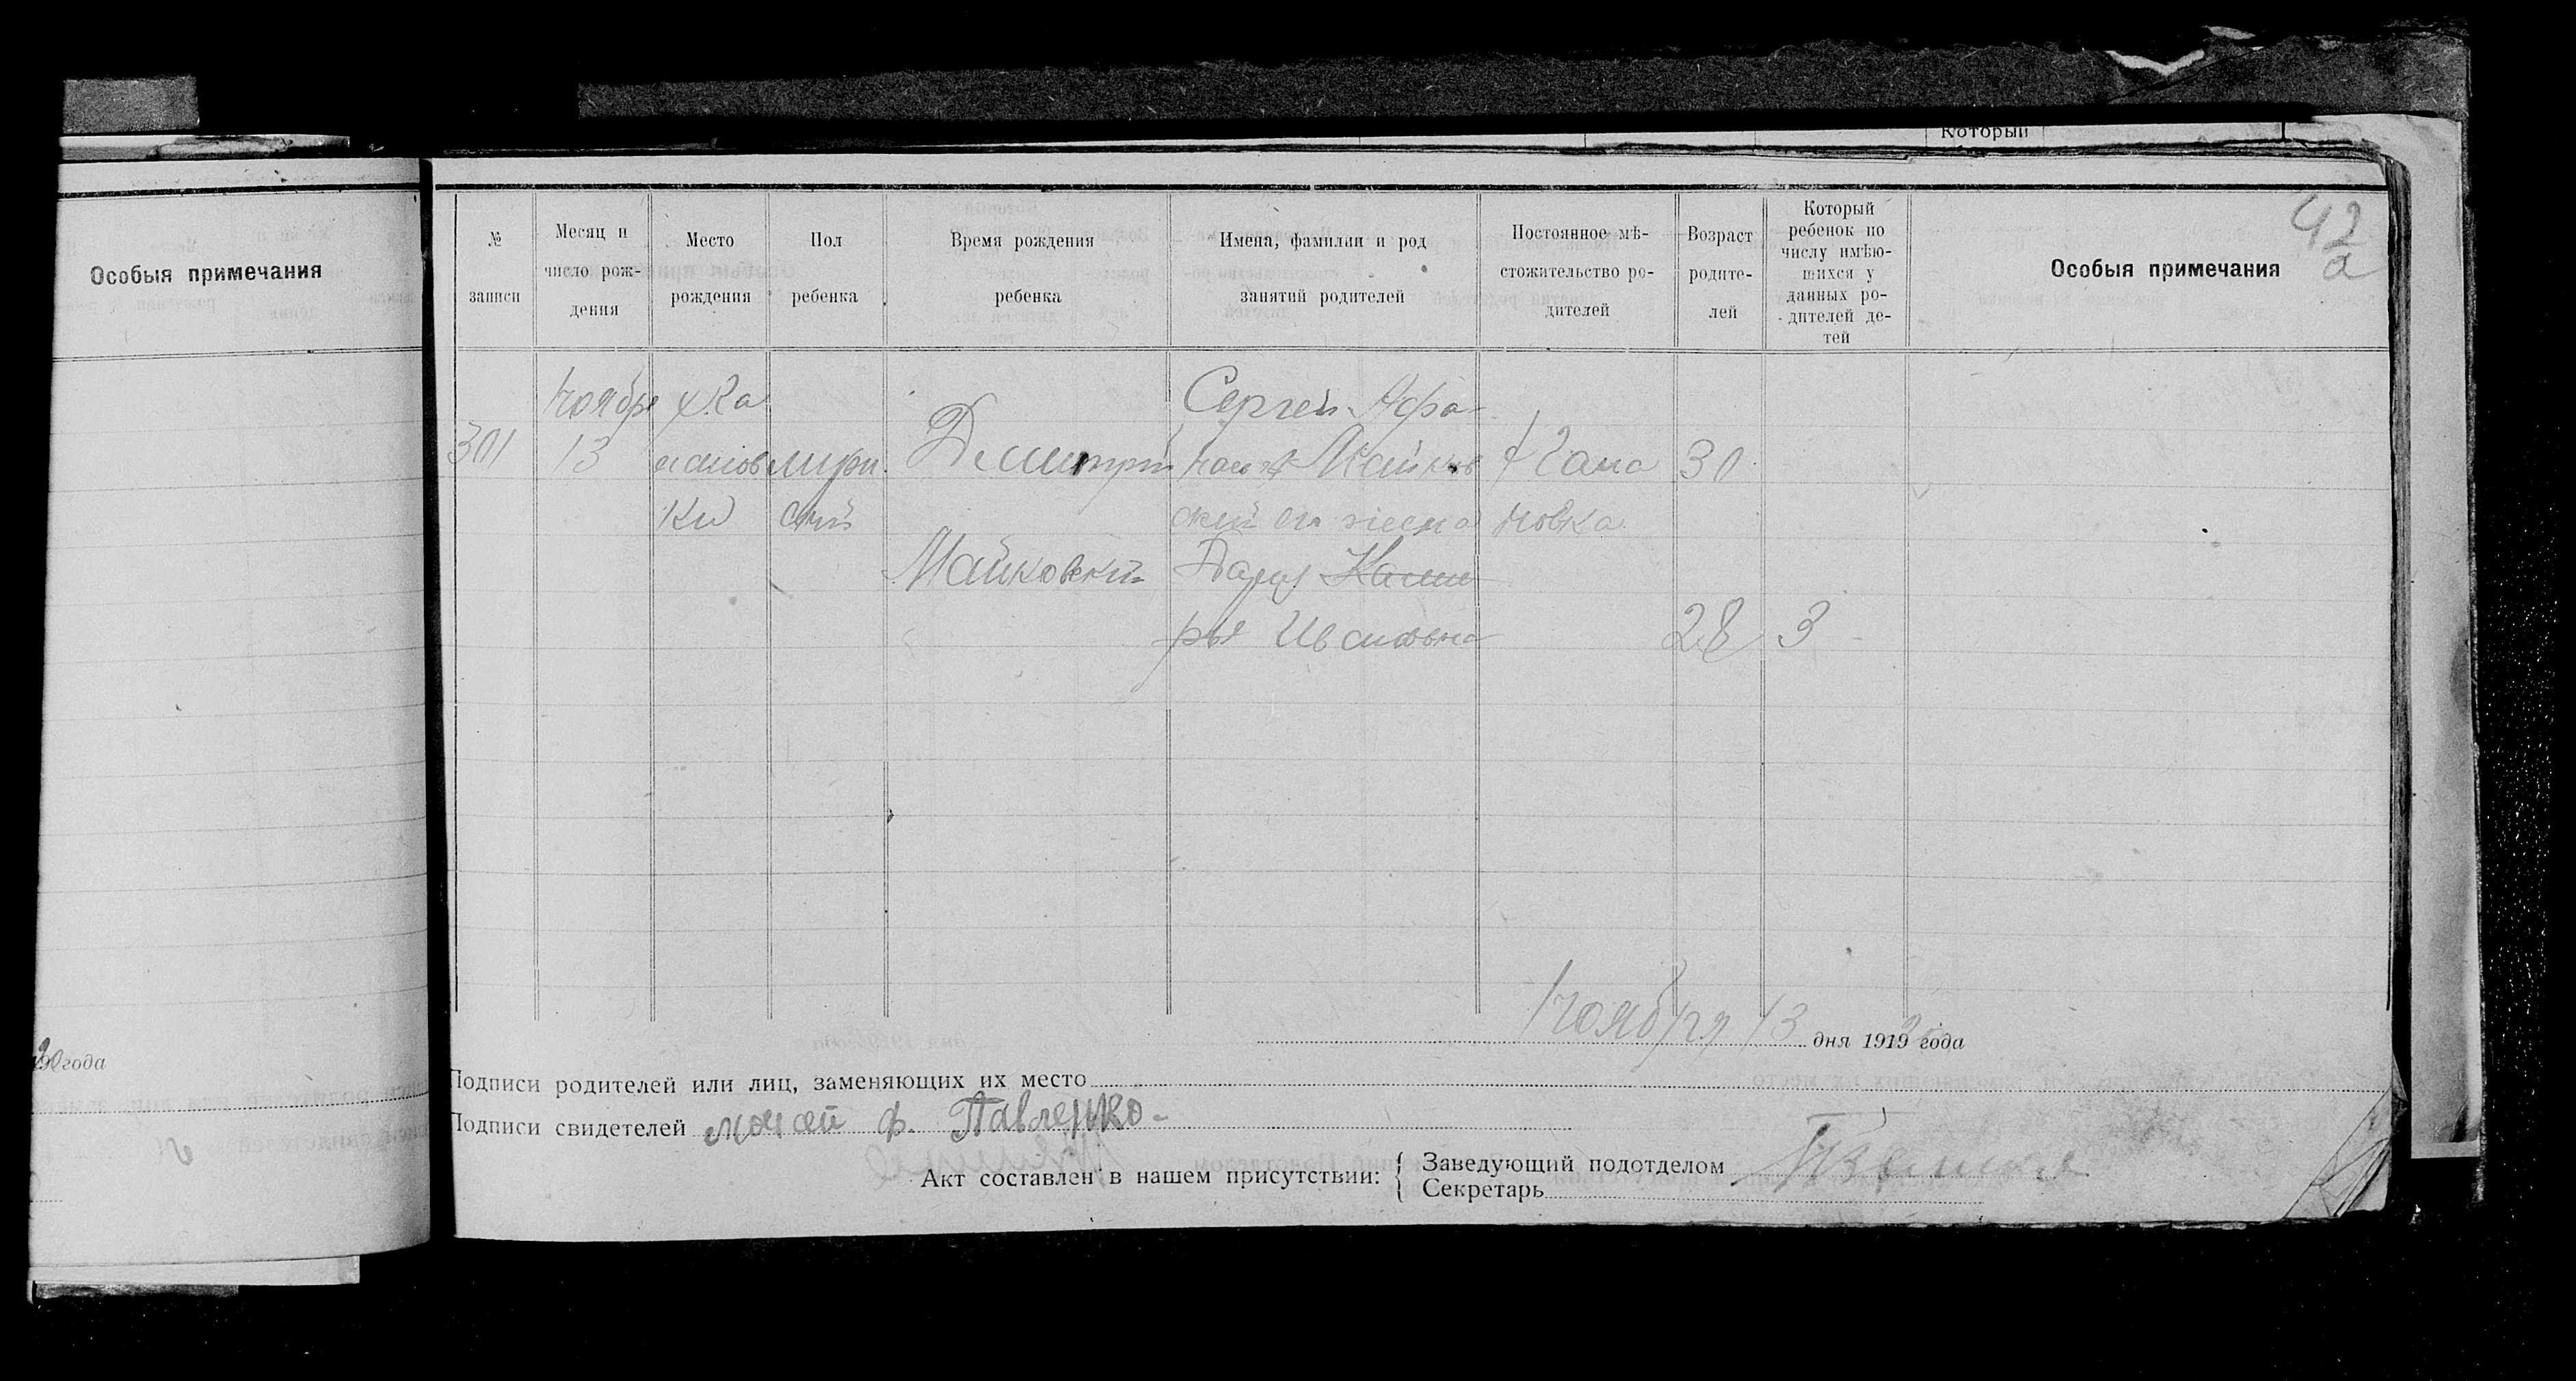 Который
Особыя примечания
№ записи
Месяц и число рож-дения
Место рождения
Пол ребенка
Время рождения ребенка
Имена, фамилии и род занятий родителей
Постоянное мѣ-стожительство ро-дителей
Возраст родите-лей
Который ребенок по числу имѣю-шихся у данных ро-дителей де-тей
Особыя примечания
42
а
Ноября х Ка Сергей Афа-
301 13 мужи Дмитрий Майков 30
ки ский ский новка
Майковский
Ивановна 28 3
Ноября 13 дня 1919 года
года
Подписи родителей или лиц, заменяющих их место
Подписи свидетелей Ф. Павленко
Акт составлен в нашем присутствии: { Заведующий подотделом
Секретарь